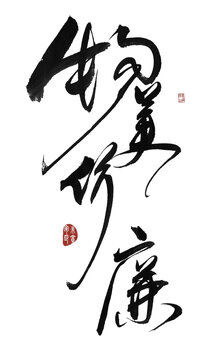 物美价廉